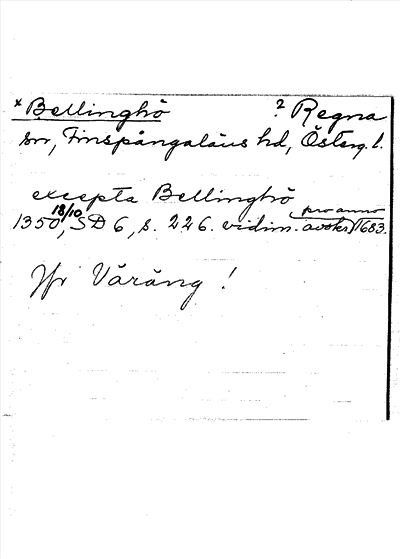 * Bellinghö ? Regna
sn, Finspångaläns hd, Österg. l.
excepta Bellinghö
1350 18/10, SD 6, s. 226. vidim. avskr. pro anno 1683.
Jfr Väräng !